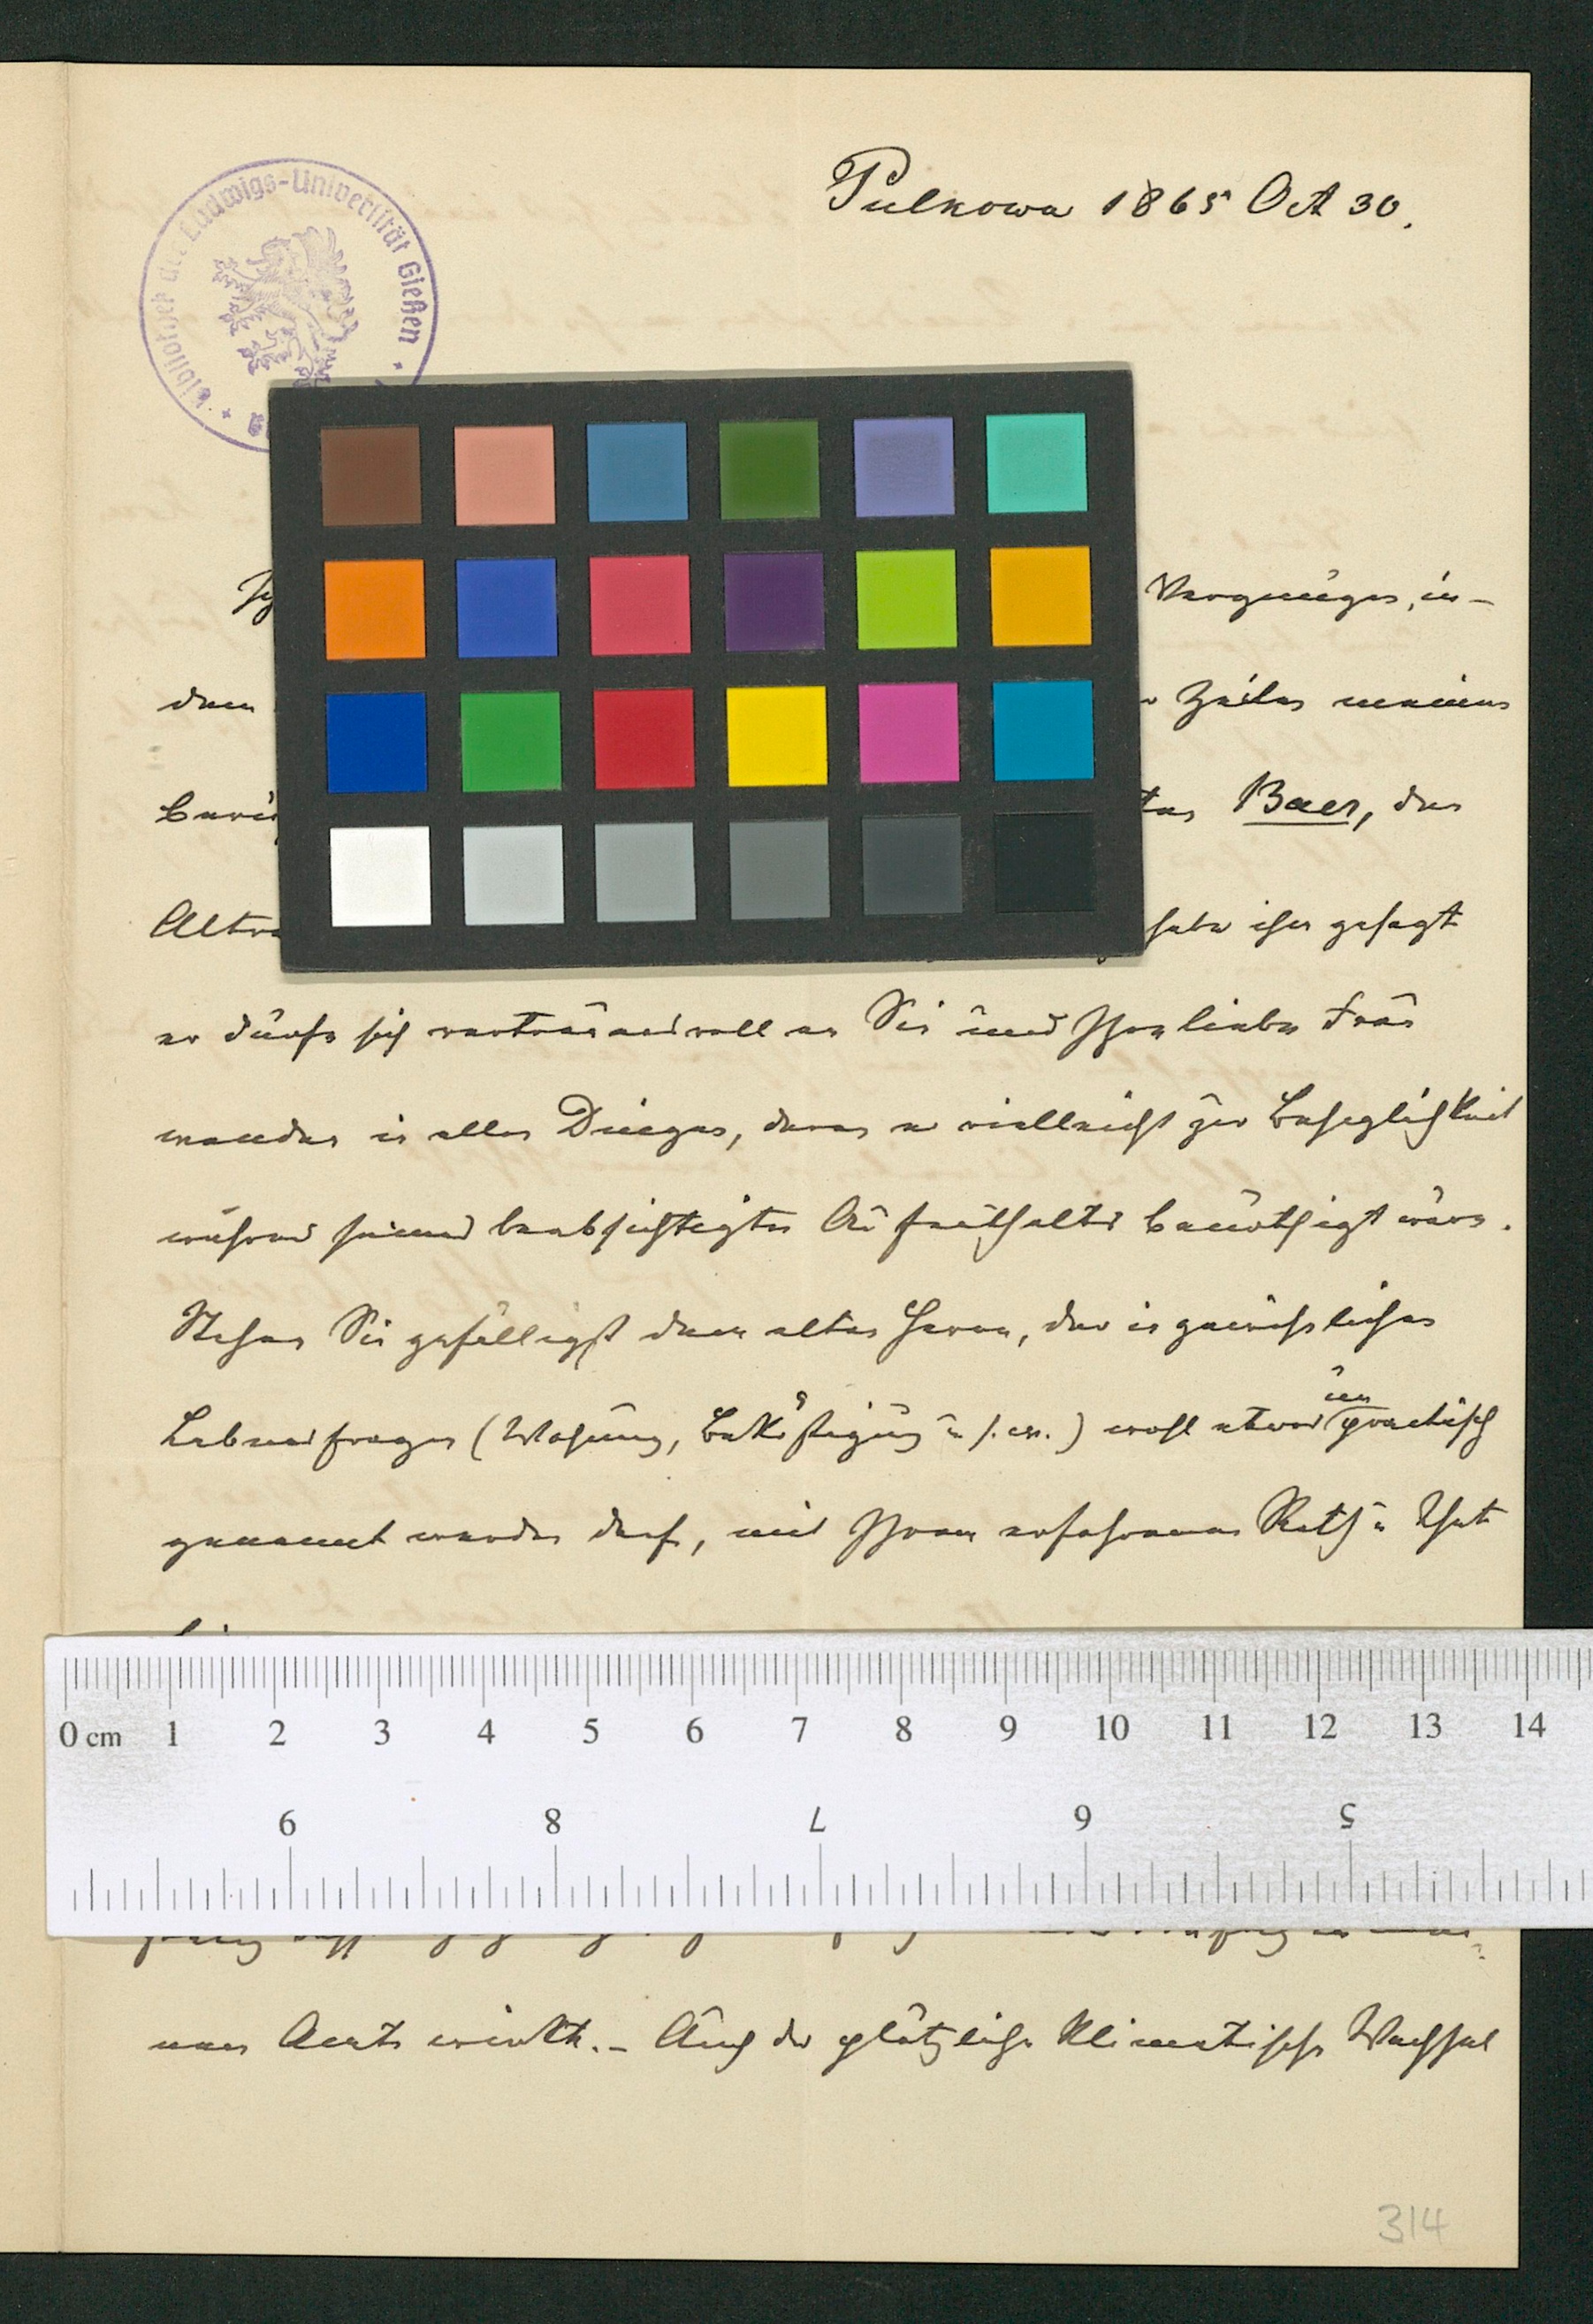 Bibliothek der Ludwigs-Universität Gießen
Pulkowa 1865 Oct 30.
Vergnügen, in-
dem Zeilen meinen
Baer, den
habe ihm gesagt
er dürfe sich vertrauensvoll an Sie und Ihre liebe Frau
wenden in allen Dingen, deren er vielleicht zur Behaglichkeit
während seines beabsichtigten Aufenthaltes benöthigt wäre.
Stehen Sie gefälligst dem alten Herrn, der in gewöhnlichen
Lebensfragen (Wohnung, Beköstigung u s. w.) wohl etwas unpractisch
genannt werden darf, mit Ihrem erfahrenen Rath u That
0 cm 1 2 3 4 5 6 7 8 9 10 11 12 13 14
9 8 7 6 5
nen Aerzte wirkte. – Auch der plötzliche klimatische Wechsel
314